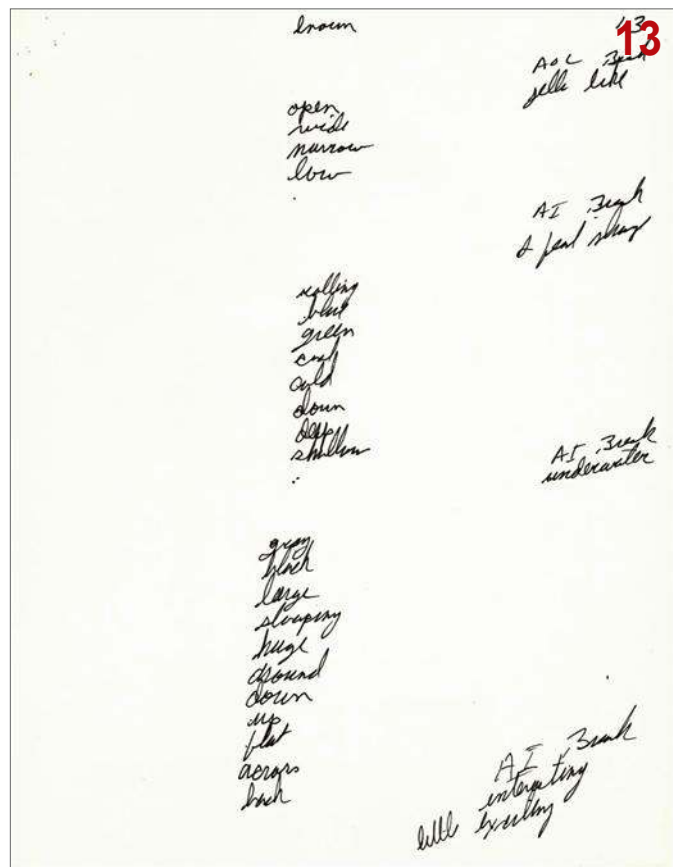 brown
13
AOL Break
open
wide
narrow
low
AI Break
rolling
blue
green
cool
cold
down
deep
shallow
AI Break
underwater
gray
black
large
sloaping
huge
around
down
up
flat
across
back
AI Break
interesting
little exciting